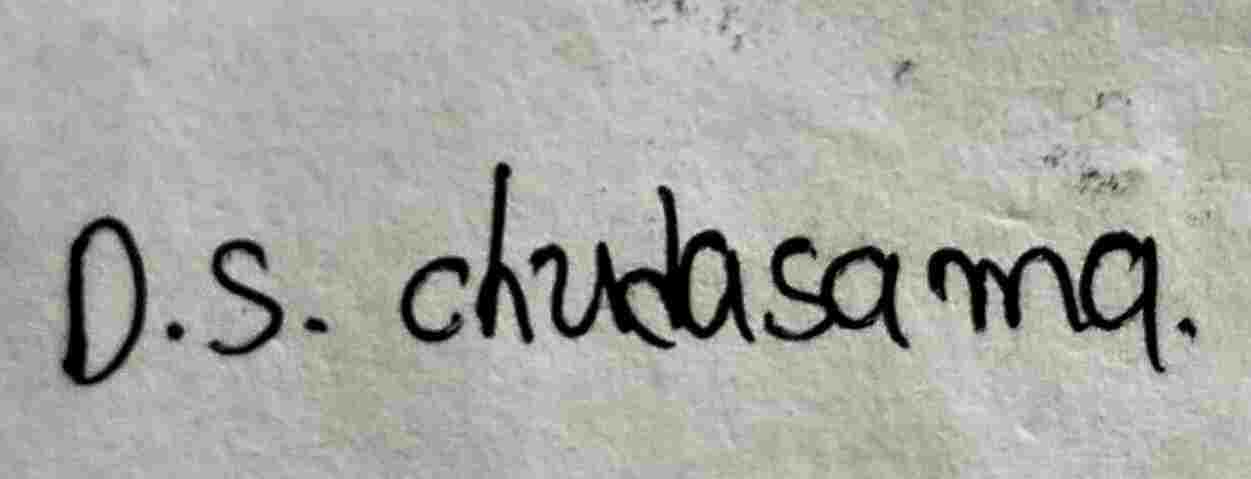 D.S. chudasama.